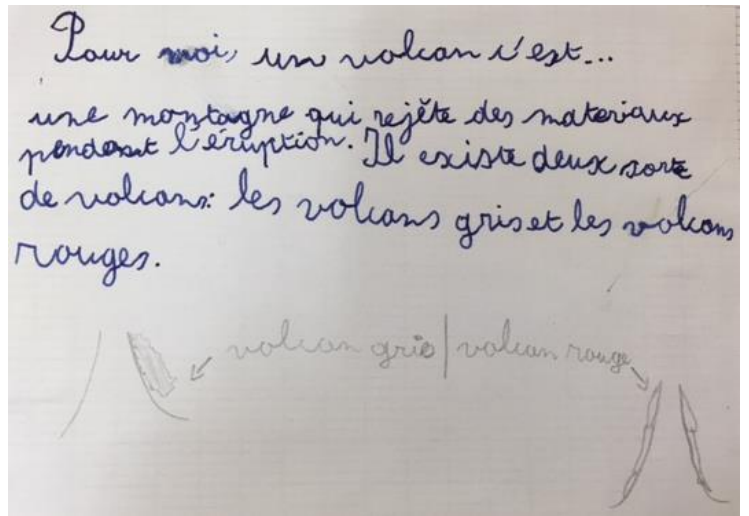 Pour moi, un volcan c'est...
une montagne qui rejète des materiaux
pendant l'éruption. Il existe deux sorte
de volcans: les volcans gris et les volcans
rouges.
volcan gris | volcan rouge